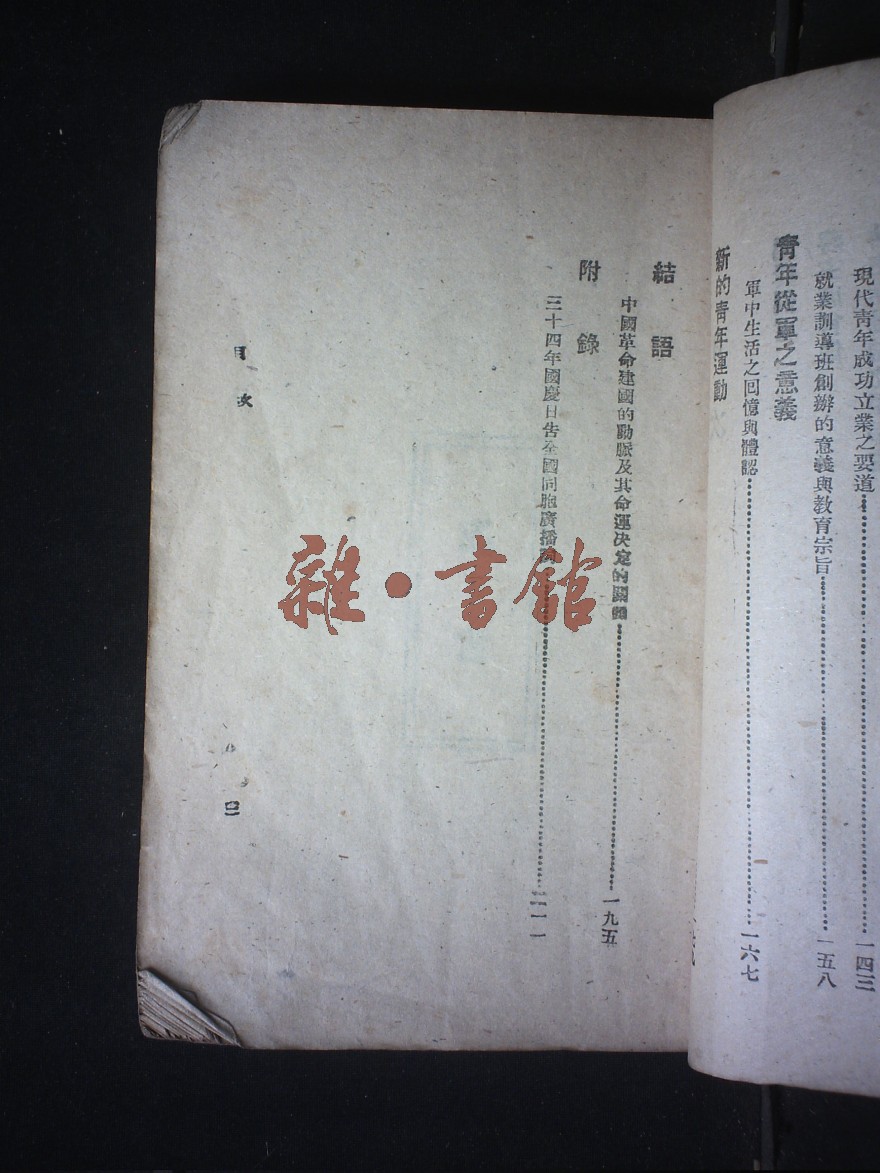 現代青年成功立業之要道……一四三
就業訓導班創辦的意義與教育宗旨……一五八
青年從軍之意義
軍中生活之回憶與體認……一六七
新的青年運動
結語
中國革命建國的動脈及其命運決定的關頭……一九五
附錄
三十四年國慶日告全國同胞廣播……二一一
目次
雜·書館